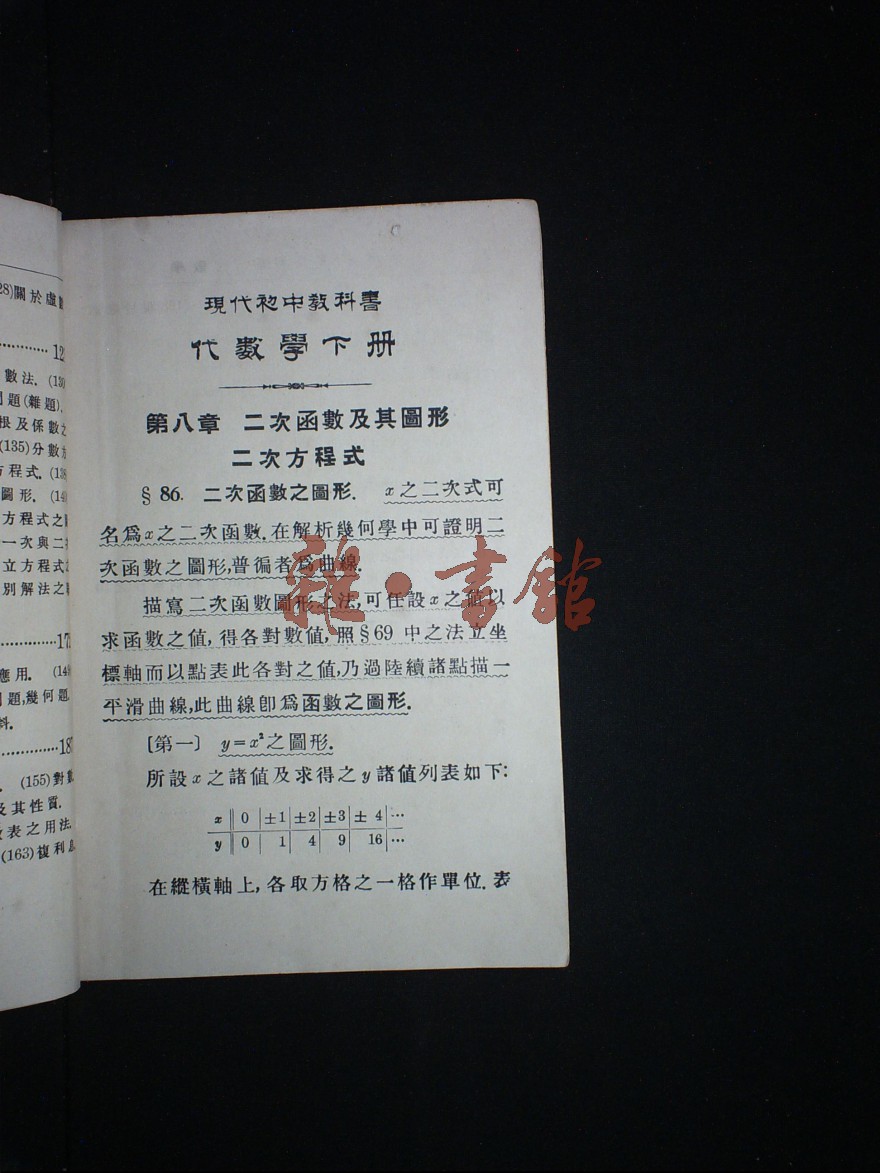 28)關於虛
12
數法. (130)
題(雜題).
根及係數之
(135)分數方
方程式. (13
圖形. (14
方程式之
一次與二
立方程式
別解法之
17
應用. (14
題,幾何題
18
(155)對數
及其性質.
表之用法.
(163)複利
現代初中教科書
代數學下册
第八章 二次函數及其圖形
二次方程式
§ 86. 二次函數之圖形. x之二次式可
名爲x之二次函數.在解析幾何學中可證明二
次函數之圖形,普徧者爲曲線.
描寫二次函數圖形之法,可任設x之值以
求函數之值,得各對數值,照§69中之法立坐
標軸而以點表此各對之值,乃過陸續諸點描一
平滑曲線,此曲線卽爲函數之圖形.
〔第一〕 y=x²之圖形.
所設x之諸值及求得之y諸值列表如下:
x 0 ±1 ±2 ±3 ± 4 …
y 0 1 4 9 16 …
在縱橫軸上,各取方格之一格作單位.表
雜·書館